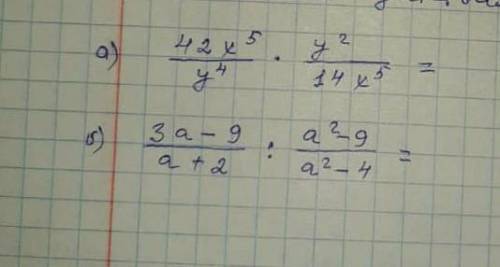 а) 42x⁵/y⁴ · y²/14x⁵ =
б) 3a-9/a+2 : a²-9/a²-4 =